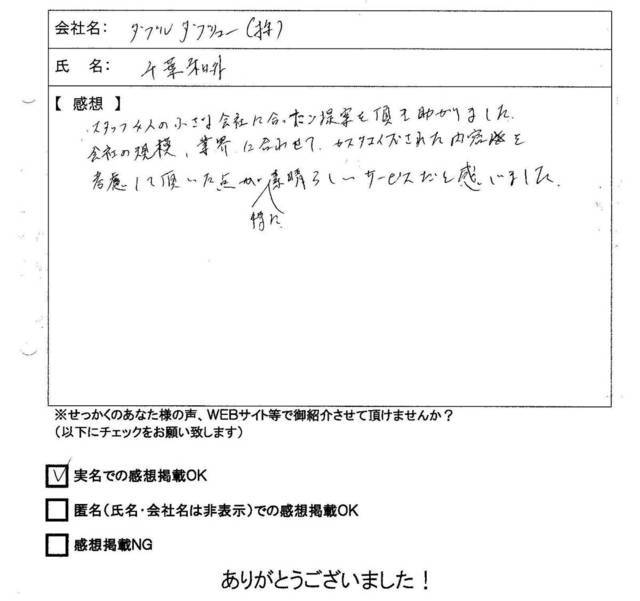 会社名: ダブルダブリュー(株)
氏 名: 千葉和外
【 感想 】
スタッフ4人の小さな会社に合った提案を頂き助かりました。
会社の規模、業界に合わせて、カスタマイズされた内容を
考慮して頂いた点が特に素晴らしいサービスだと感じました。
※せっかくのあなた様の声、WEBサイト等で御紹介させて頂けませんか？
（以下にチェックをお願い致します）
実名での感想掲載OK
匿名（氏名・会社名は非表示）での感想掲載OK
感想掲載NG
ありがとうございました！